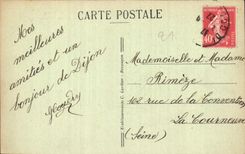 CARTE POSTALE
Mes
meilleures
amitiés et un
bonjour de Dijon
Mademoiselle et Madame
Rimèze
102 rue de la Convention
La Courneuve
(Seine)